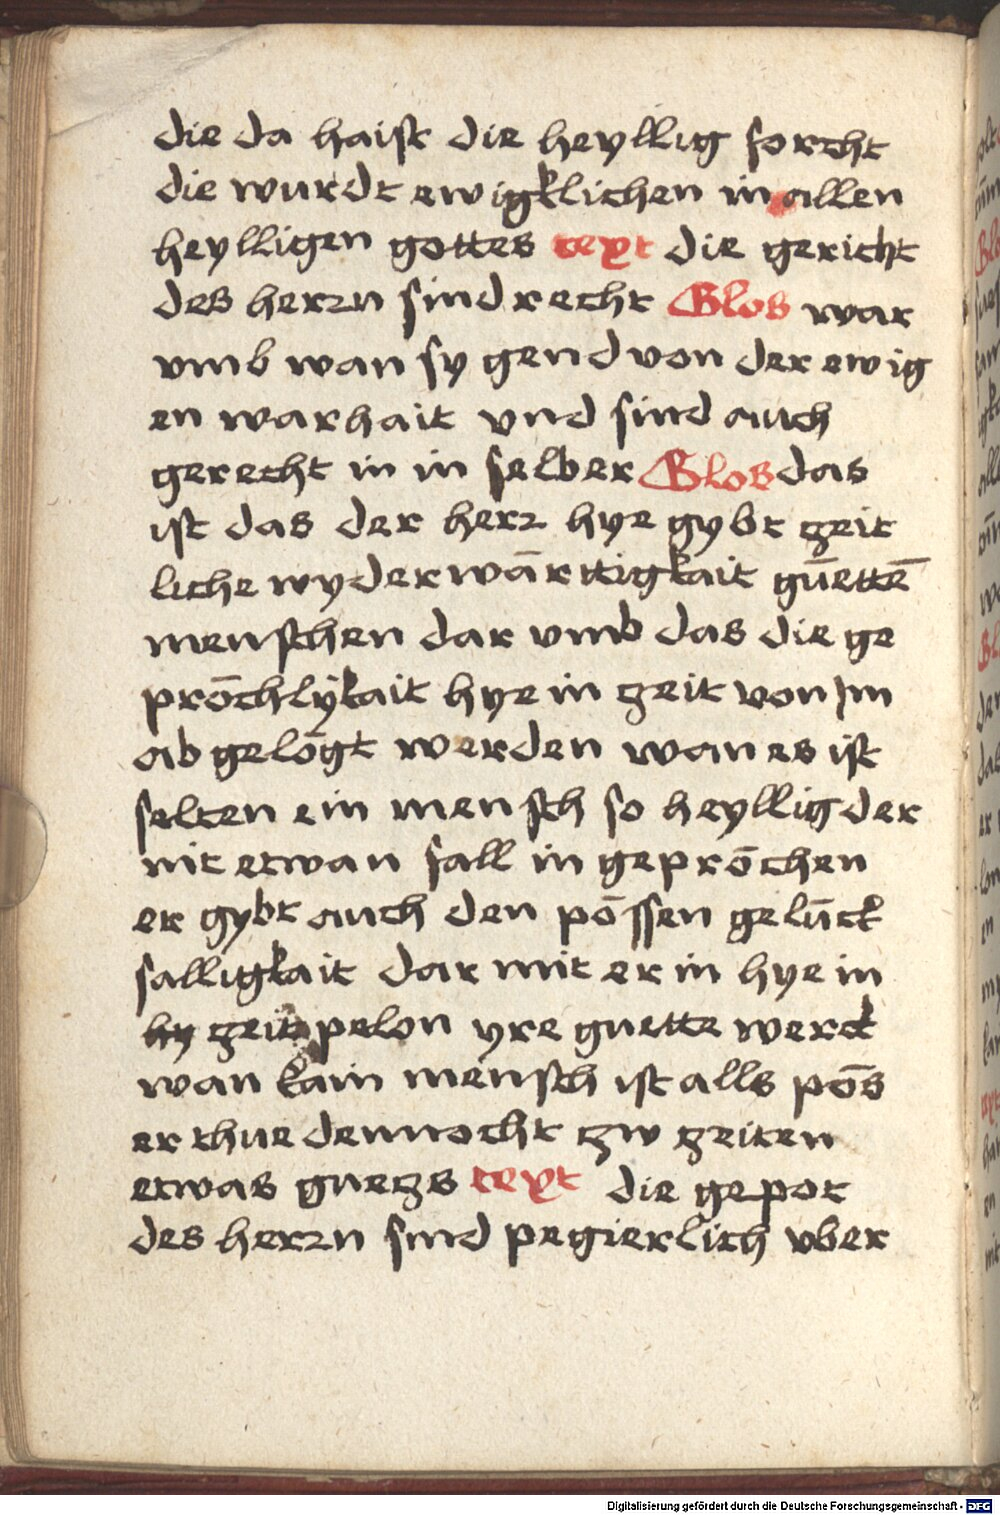 die da haist die heyllig forcht
die wurdt ewigklichen in allen
heylligen gottes text die gericht
des herrn sind recht Glos war
vmb wan sy gend von der ewig
en warhait vnd sind auch
gerecht in in selber Glos das
ist das der herr hye gybt zeit
liche wyderwārttigkait gūettē
menschen dar vmb das die ge
prōchlÿkait hye in zeit von Im
ab gelōgt werden wan es ist
selten ein mensch so heyllig der
nit etwan fall in geprōchen
er gybt auch den pōssen gelūck
salligkait dar mit er in hye in
hy zeit pelon yre guette werck
wan kain mensch ist alls pōs
er thue dennocht zw zeiten
etwas guezs text die gepot
des herrn sind pegierlich vber
Digitalisierung gefördert durch die Deutsche Forschungsgemeinschaft - DFG